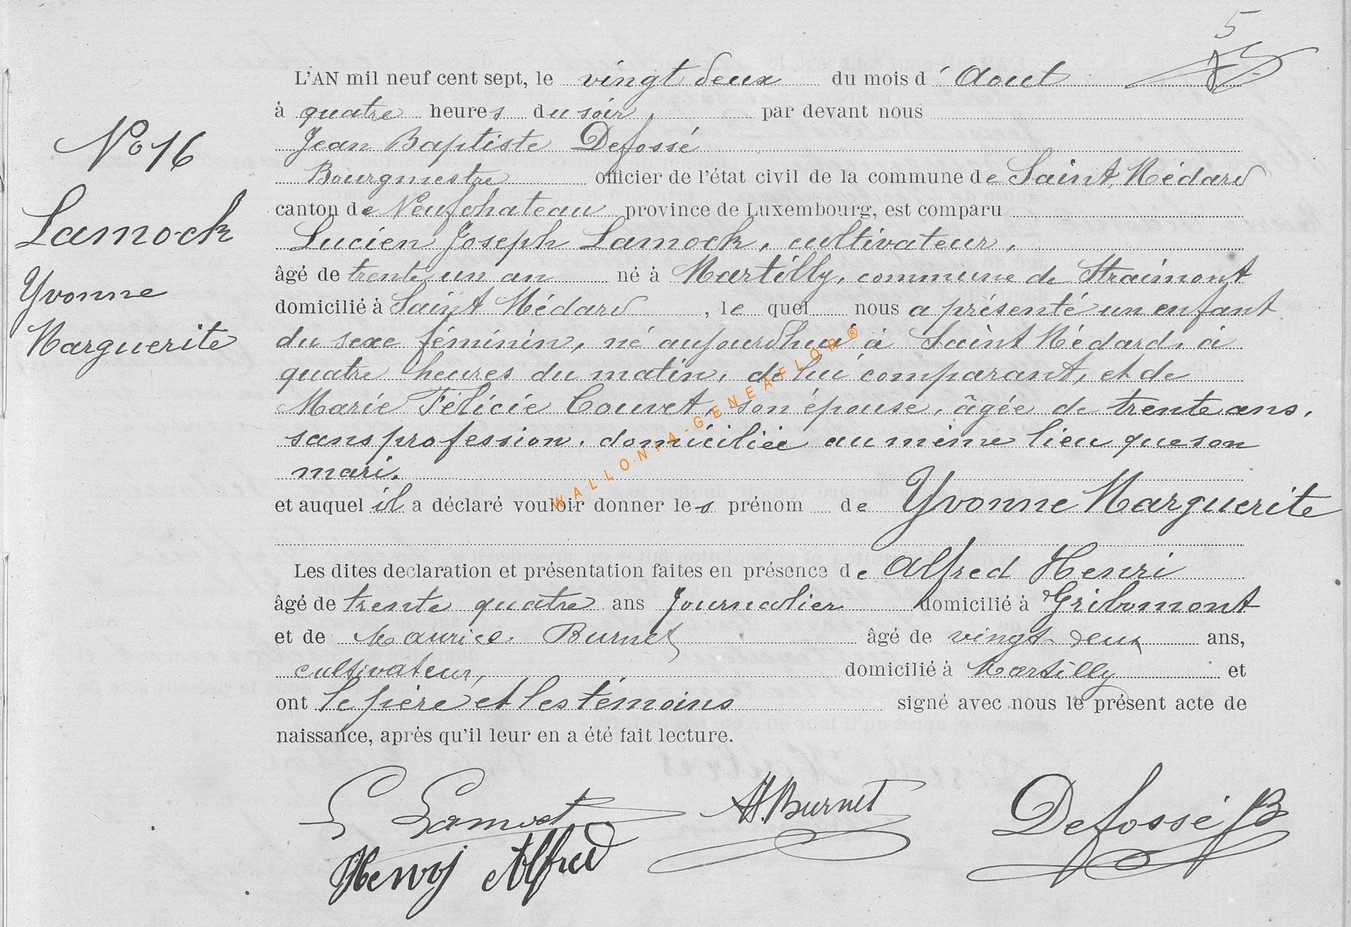 5
L'AN mil neuf cent sept, le vingt deux du mois d' Aout
à quatre heures du soir, par devant nous
Jean Baptiste Defossé
Bourgmestre officier de l'état civil de la commune de Saint Médard
canton de Neufchateau province de Luxembourg, est comparu
Lucien Joseph Lamock, cultivateur,
âgé de trente un an né à Martilly, commune de Straimont
domicilié à Saint Médard, le quel nous a présenté un enfant
du sexe féminin, né aujourd'hui à Saint Médard, à
quatre heures du matin, de lui comparant, et de
Marie Félicie Couvet, son épouse, âgée de trente ans,
sans profession, domiciliée au même lieu que son
mari.
et auquel il a déclaré vouloir donner les prénom de Yvonne Marguerite
Les dites declaration et présentation faites en présence de Alfred Henri
âgé de trente quatre ans Journalier domicilié à Gribomont
et de Maurice Burnet âgé de vingt deux ans,
cultivateur, domicilié à Martilly et
ont le père et les témoins signé avec nous le présent acte de
naissance, après qu'il leur en a été fait lecture.
No 16
Lamock
Yvonne
Marguerite
L Lamock M. Burnet Defossé JB
Henry Alfred
WALLONIA-GENEAFLOR®